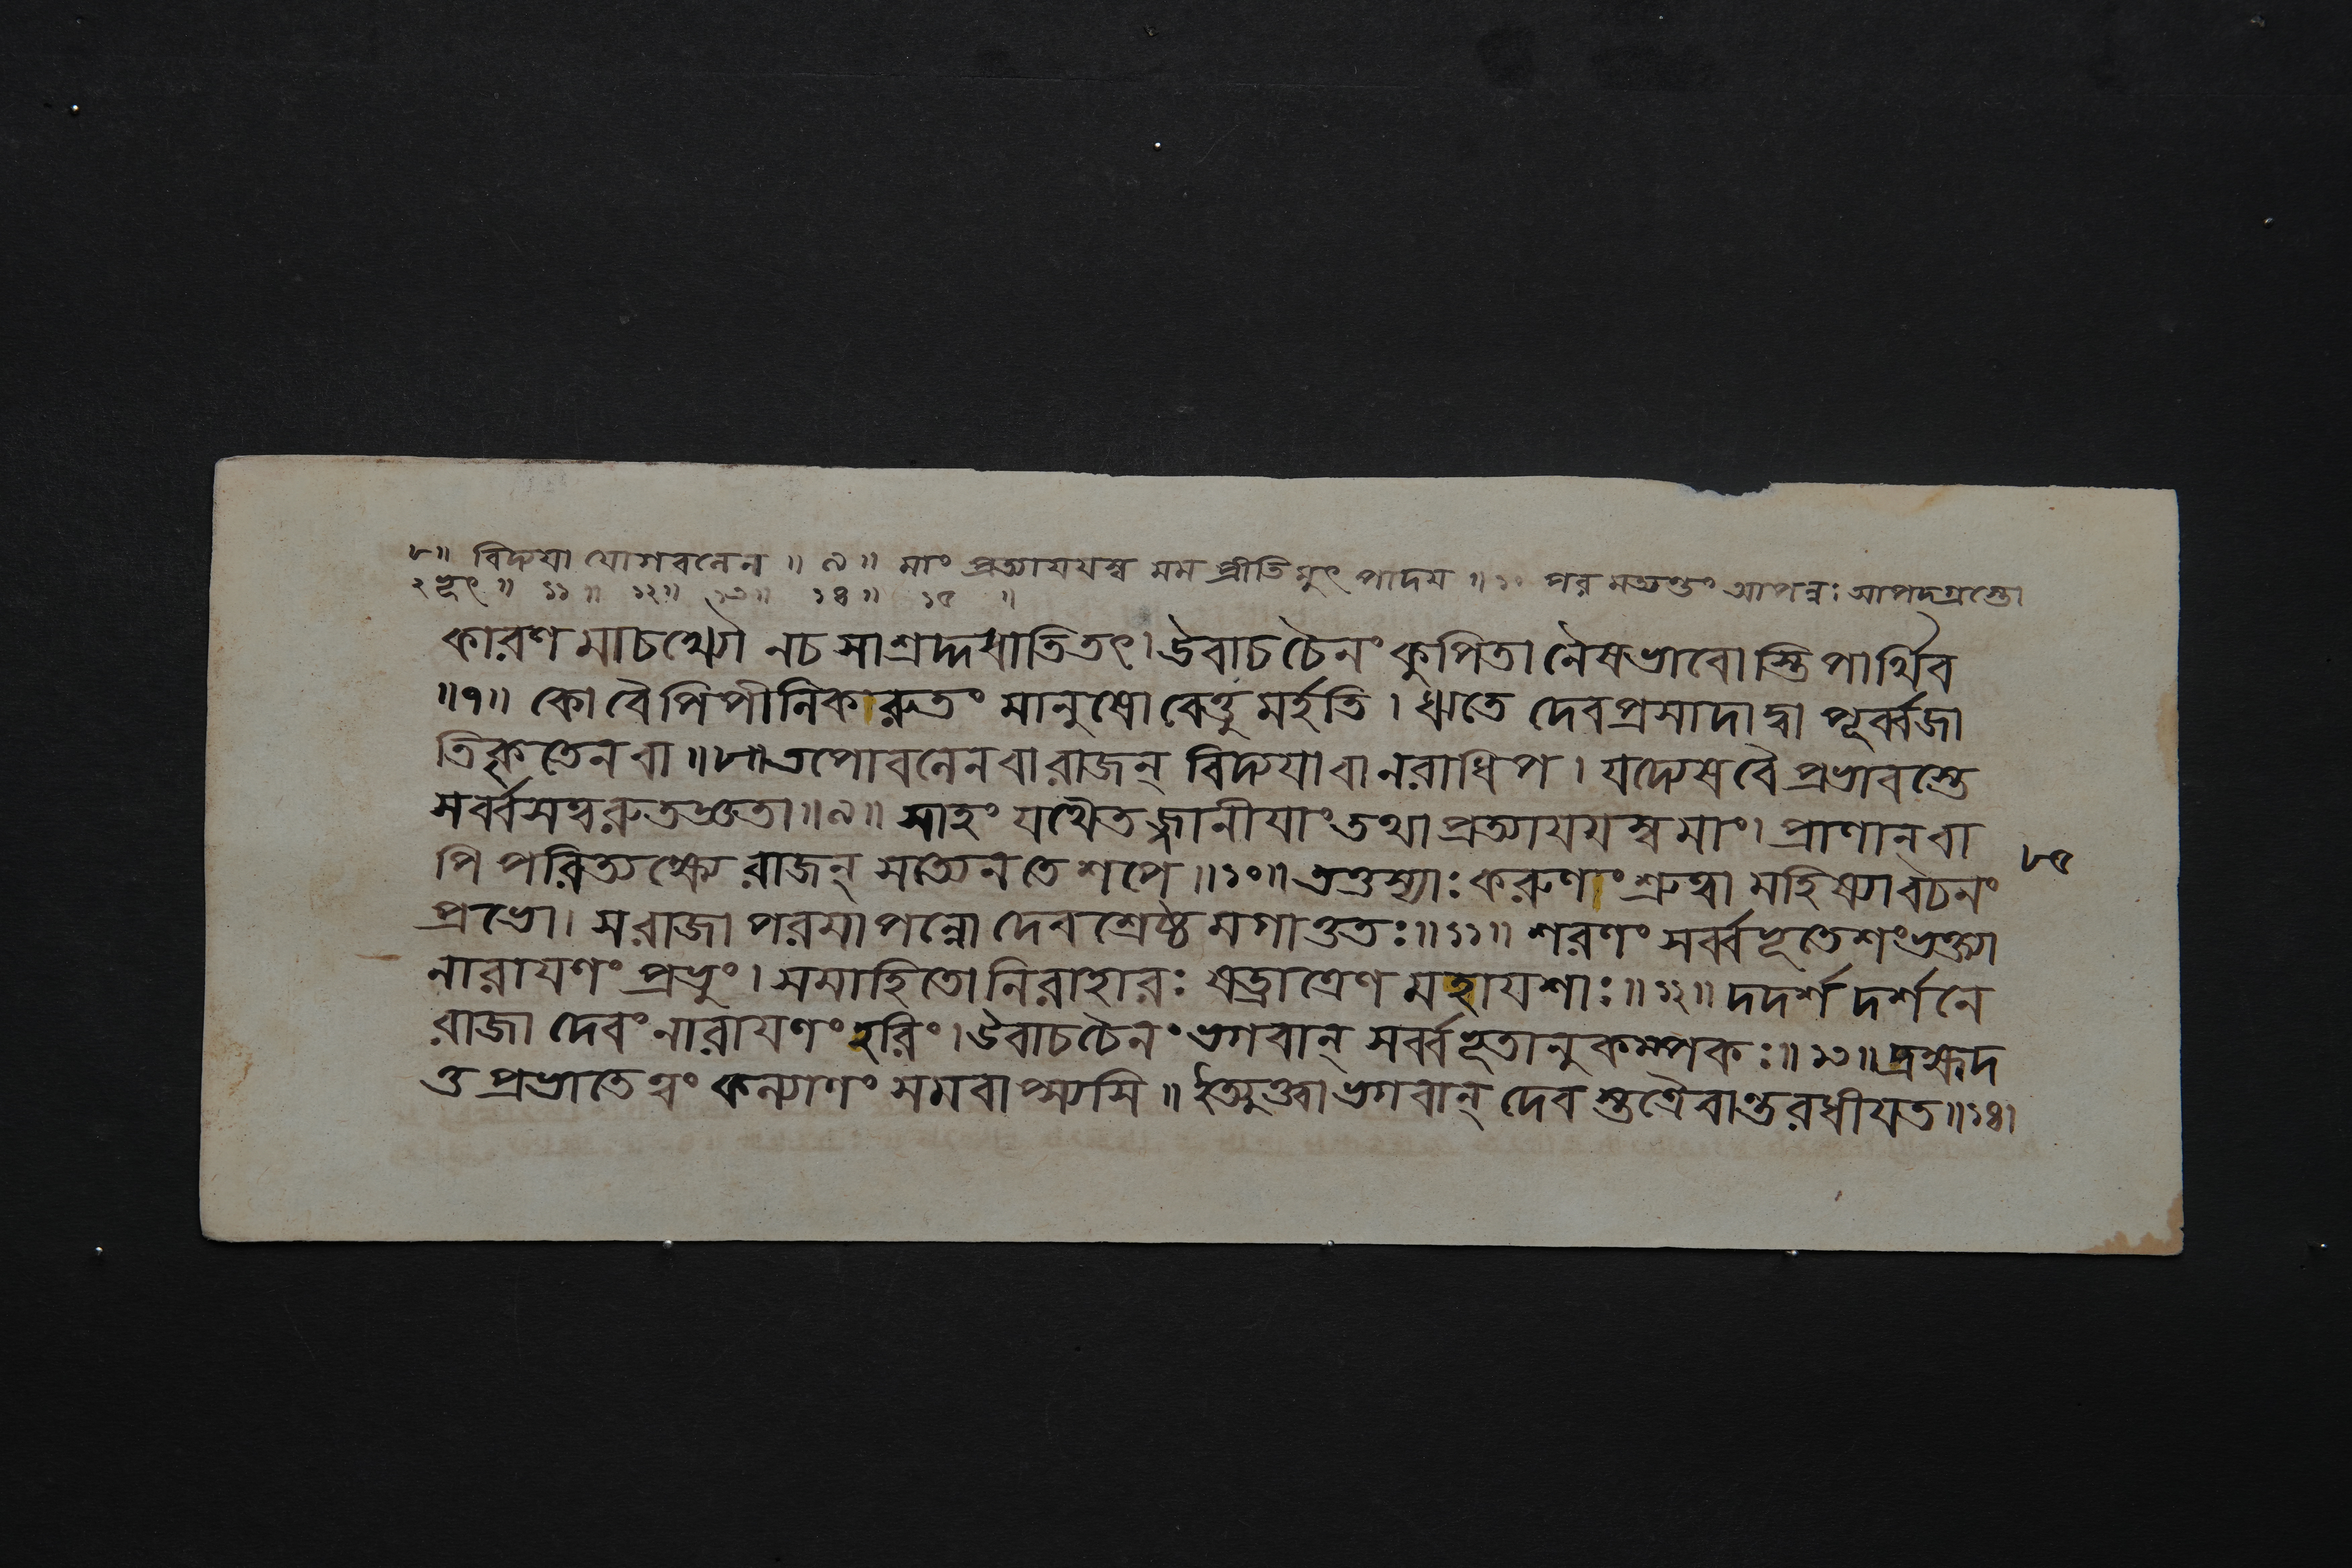 ৮॥ বিদ্যয়া যোগবলেন ॥ ৯ ॥ মাং প্রত্যাযযস্ব মম প্রীতিমুৎপাদয ॥ ১০ পরমত্যন্তং আপন্নঃ আপদ্গ্রস্তো
ঽভূৎ ॥ ১১ ॥ ১২॥ ১৩॥ ১৪॥ ১৫ ॥
কারণমাচখ্যৌ নচ সাশ্রদ্দধাতি তৎ। উবাচ চৈনং কুপিতা নৈষভাবোস্তি পার্থিব
॥৭॥ কো বৈ পিপীলিকারুতং মানুষো বেত্তুমর্হতি। ঋতে দেবপ্রসাদাদ্বা পূর্ব্বজা
তিকৃতেন বা ॥৮॥ তপোবলেন বা রাজন্ বিদ্যযা বা নরাধিপ। যদ্যেষ বৈ প্রভাবস্তে
সর্ব্বসত্ত্বরুতজ্ঞতা॥৯॥ সাহং যথৈতজ্জানীযাং তথা প্রত্যাযযস্ব মাং। প্রাণান্ বা
পি পরিত্যক্ষ্যে রাজন্ সত্যেন তে শপে ॥১০॥ তত্তস্যাঃ করুণাং শ্রুত্বা মহিষ্যা বচনং
৮৫
প্রভো। স রাজা পরমাপন্নো দেবশ্রেষ্ঠমগাত্ততঃ॥১১॥ শরণং সর্ব্বভূতেশং ভক্ত্যা
নারাযণং প্রভুং। সমাহিতো নিরাহারঃ ষড্রাত্রেণ মহাযশাঃ॥১২॥ দদর্শ দর্শনে
রাজা দেবং নারাযণং হরিং। উবাচ চৈনং ভগবান্ সর্ব্বভূতানুকম্পকঃ॥১৩॥ ব্রহ্মদ
ত্ত প্রভাতে ত্বং কল্যাণং সমবাপ্স্যসি ॥ ইত্যুক্ত্বা ভগবান্ দেবস্তত্রৈবান্তরধীযত॥১৪।